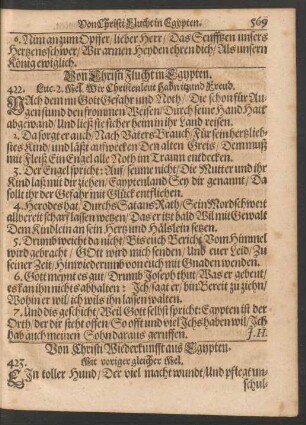 Von Christi Flucht in Egypten. 569
6. Nim an zum Opffer, lieber Herr, Das Seufftzen unsers
Hertzens schwer/ Wir armen Heyden ehren dich/ Als unsern
König ewiglich.
Von Christi Flucht in Egypten.
422. Luc. 2. Mel. Wir Christenleut habn itzund Freud.
NAch dem nu Gott Gefahr und Noth/ Die schon für Au-
gen stund den frommen Weisen/ Durch seine Hand Hatt
abgewand/ Und ließ sie sicher heim in ihr Land reisen.
2. Da sorgt er auch Nach Vaters Brauch/ Für sein hertzlieb-
stes Kind/ und läst auffwecken Den alten Greis/ Dem muß
mit Fleiß Ein Engel alle Noth im Traum entdecken.
3. Der Engel spricht: Auf/ seume nicht/ Die Mutter und ihr
Kind laß mit dir ziehen/ Egyptenland Sey dir genannt/ Da
solt ihr der Gefahr mit Glück entfliehen.
4. Herodes hat Durchs Satans Rath/ Sein Mordschwert
allbereit scharf lassen wetzen/ Das er itzt bald Wil mit Gewalt
Dem Kindlein an sein Hertz und Hälslein setzen.
5. Drumb weicht da nicht/ Bis euch Bericht Vom Himmel
wird gebracht/ GOtt wird mich senden/ Und euer Leid/ Zu
seiner Zeit/ Hinwiederumb von euch mit Gnaden wenden.
6. Gott meynt es gut/ Drumb Joseph thut/ Was er gebeut/
es kan ihn nichts abhalten: Ich/ saget er/ bin Bereit zu ziehn/
Wohin er wil/ ich wils ihn lassen walten.
7. Und dis geschicht/ Weil Gott selbst spricht: Egypten ist der
Orth/ der dir steht offen/ So offt und viel Ichs haben wil/ Ich
hab auch meinen Sohn daraus geruffen. J. H.
Von Christi Wiederkunfft aus Egypten.
423. Mit voriger gleicher Mel.
EIn toller Hund/ Der viel macht wund/ Und pflegt un-
schul-